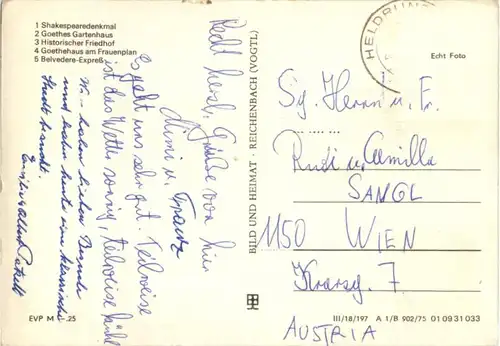 1 Shakespearedenkmal
2 Goethes Gartenhaus
3 Historischer Friedhof
4 Goethehaus am Frauenplan
5 Belvedere-Expreß
Recht herzl. Grüsse von hier
Mimi u. Franz
Es geht uns sehr gut. Teilweise
ist das Wetter sonnig, teilweise kühl
Wir haben lieben Besuch
und haben heute eine klassische
Stadt besucht.
BILD UND HEIMAT · REICHENBACH (VOGTL)
HELDRUN
Echt Foto
Sg. Herrn u. Fr.
Rudi u. Camilla
SANGL
1150 WIEN
7
AUSTRIA
EVP M .25
III/18/197 A 1/B 902/75 01 09 31 033